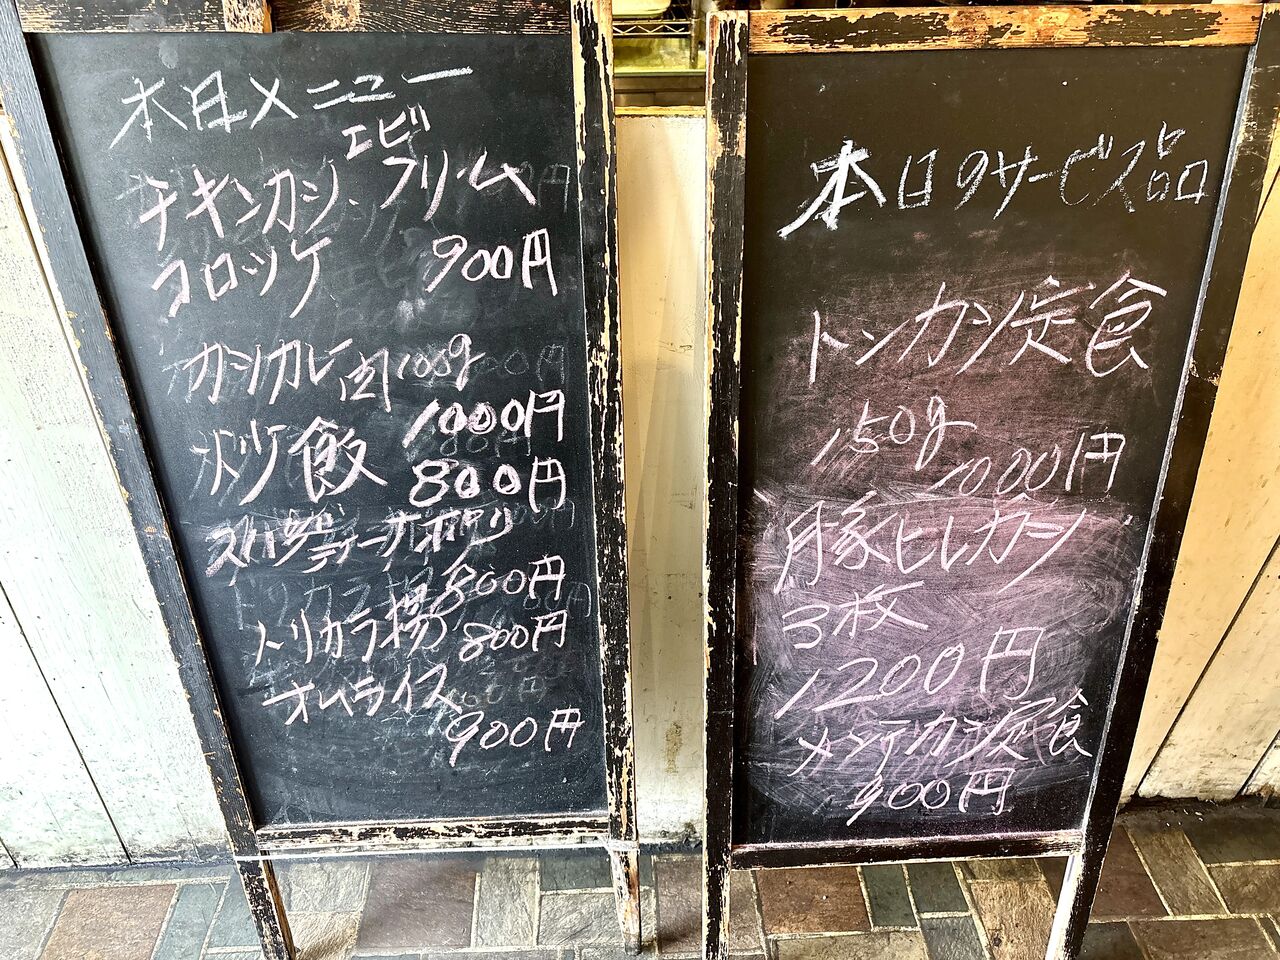 本日メニュー
エビ
チキンカツ、クリーム
コロッケ 900円
カツカレー 肉100g
1000円
炒飯 800円
スパゲ ナポリ
800円
トリカラ揚 800円
オムライス
900円
本日のサービス品
トンカツ定食
150g
1000円
豚ヒレカツ
3枚
1200円
メンチカツ定食
900円